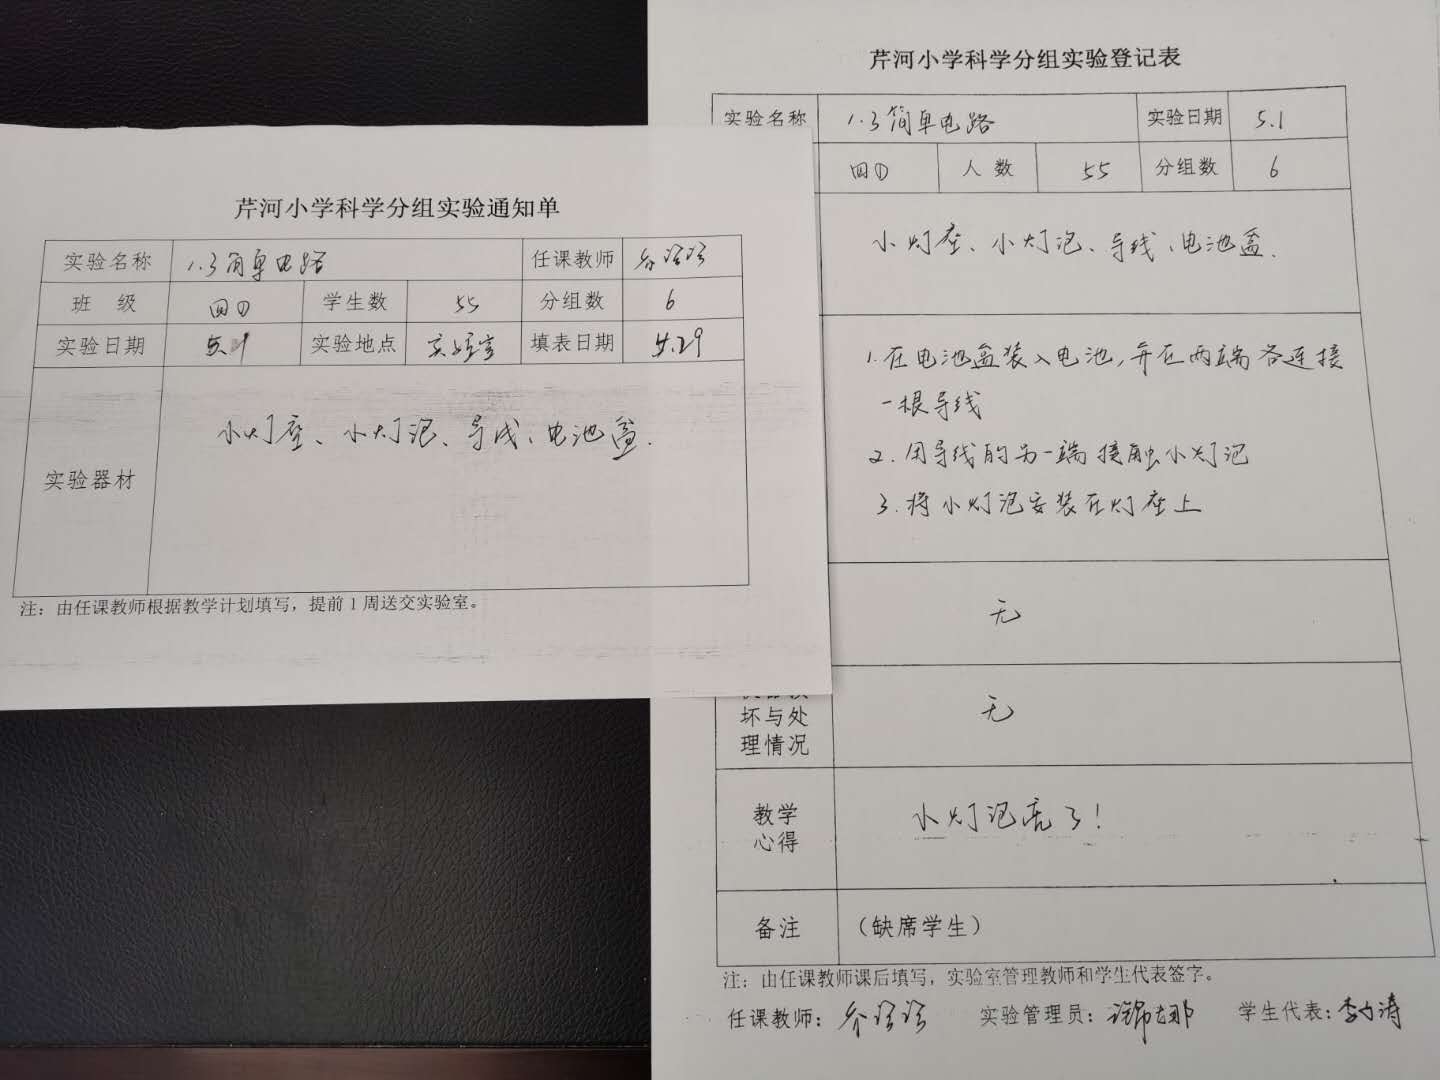 芹河小学科学分组实验通知单
实验名称 1.3简单电路 任课教师
班 级 四① 学生数 55 分组数 6
实验日期 实验地点 实验室 填表日期 4.29
实验器材 小灯座、小灯泡、导线、电池盒.
注：由任课教师根据教学计划填写，提前1周送交实验室。
芹河小学科学分组实验登记表
实验名称 1.3简单电路 实验日期 5.1
四① 人 数 55 分组数 6
小灯座、小灯泡、导线、电池盒.
1.在电池盒装入电池,并在两端各连接
一根导线
2.用导线的另一端接触小灯泡
3.将小灯泡安装在灯座上
无
坏与处
理情况
无
教学
心得
小灯泡亮了!
备注 （缺席学生）
注：由任课教师课后填写，实验室管理教师和学生代表签字。
任课教师： 实验管理员： 学生代表：